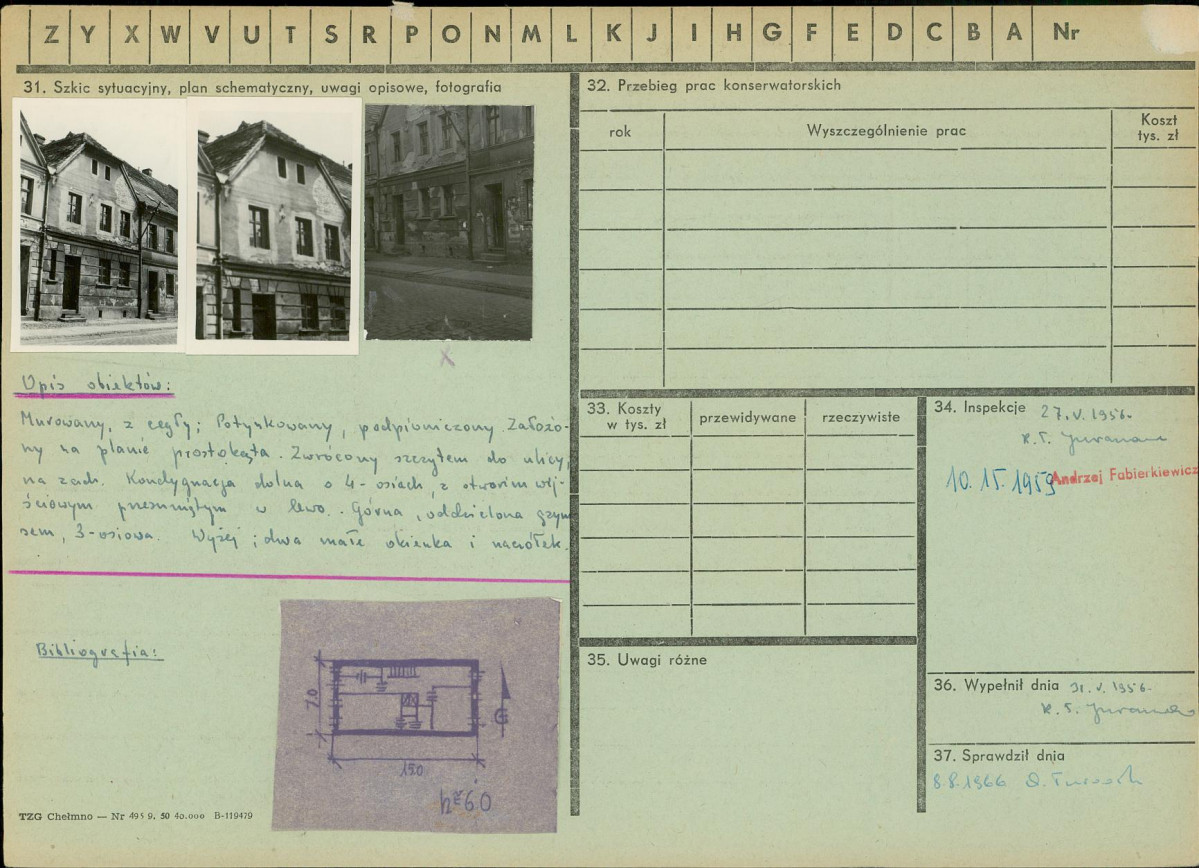 Z Y X W V U T S R P O N M L K J I H G F E D C B A Nr
31. Szkic sytuacyjny, plan schematyczny, uwagi opisowe, fotografia
X
Opis obiektów:
Murowany, z cegły; Potynkowany, podpiwniczony. Założo-
ny na planie prostokąta. Zwrócony szczytem do ulicy,
na zach. Kondygnacja dolna o 4-osiach, z otworem wej-
ściowym przesuniętym w lewo. Górna, oddzielona gzym
sem, 3-osiowa. Wyżej; dwa małe okienka i naczółek.
Bibliografia:
7.0
15.0
TZG Chełmno — Nr 495 9. 50 40.000 B-119479
32. Przebieg prac konserwatorskich
rok
Wyszczególnienie prac
Koszt
tys. zł
33. Koszty
w tys. zł
przewidywane
rzeczywiste
34. Inspekcje 27.V.1956.
10.IX.1959 Andrzej Fabierkiewicz
35. Uwagi różne
36. Wypełnił dnia 31.V.1956.
37. Sprawdził dnia
8.8.1966